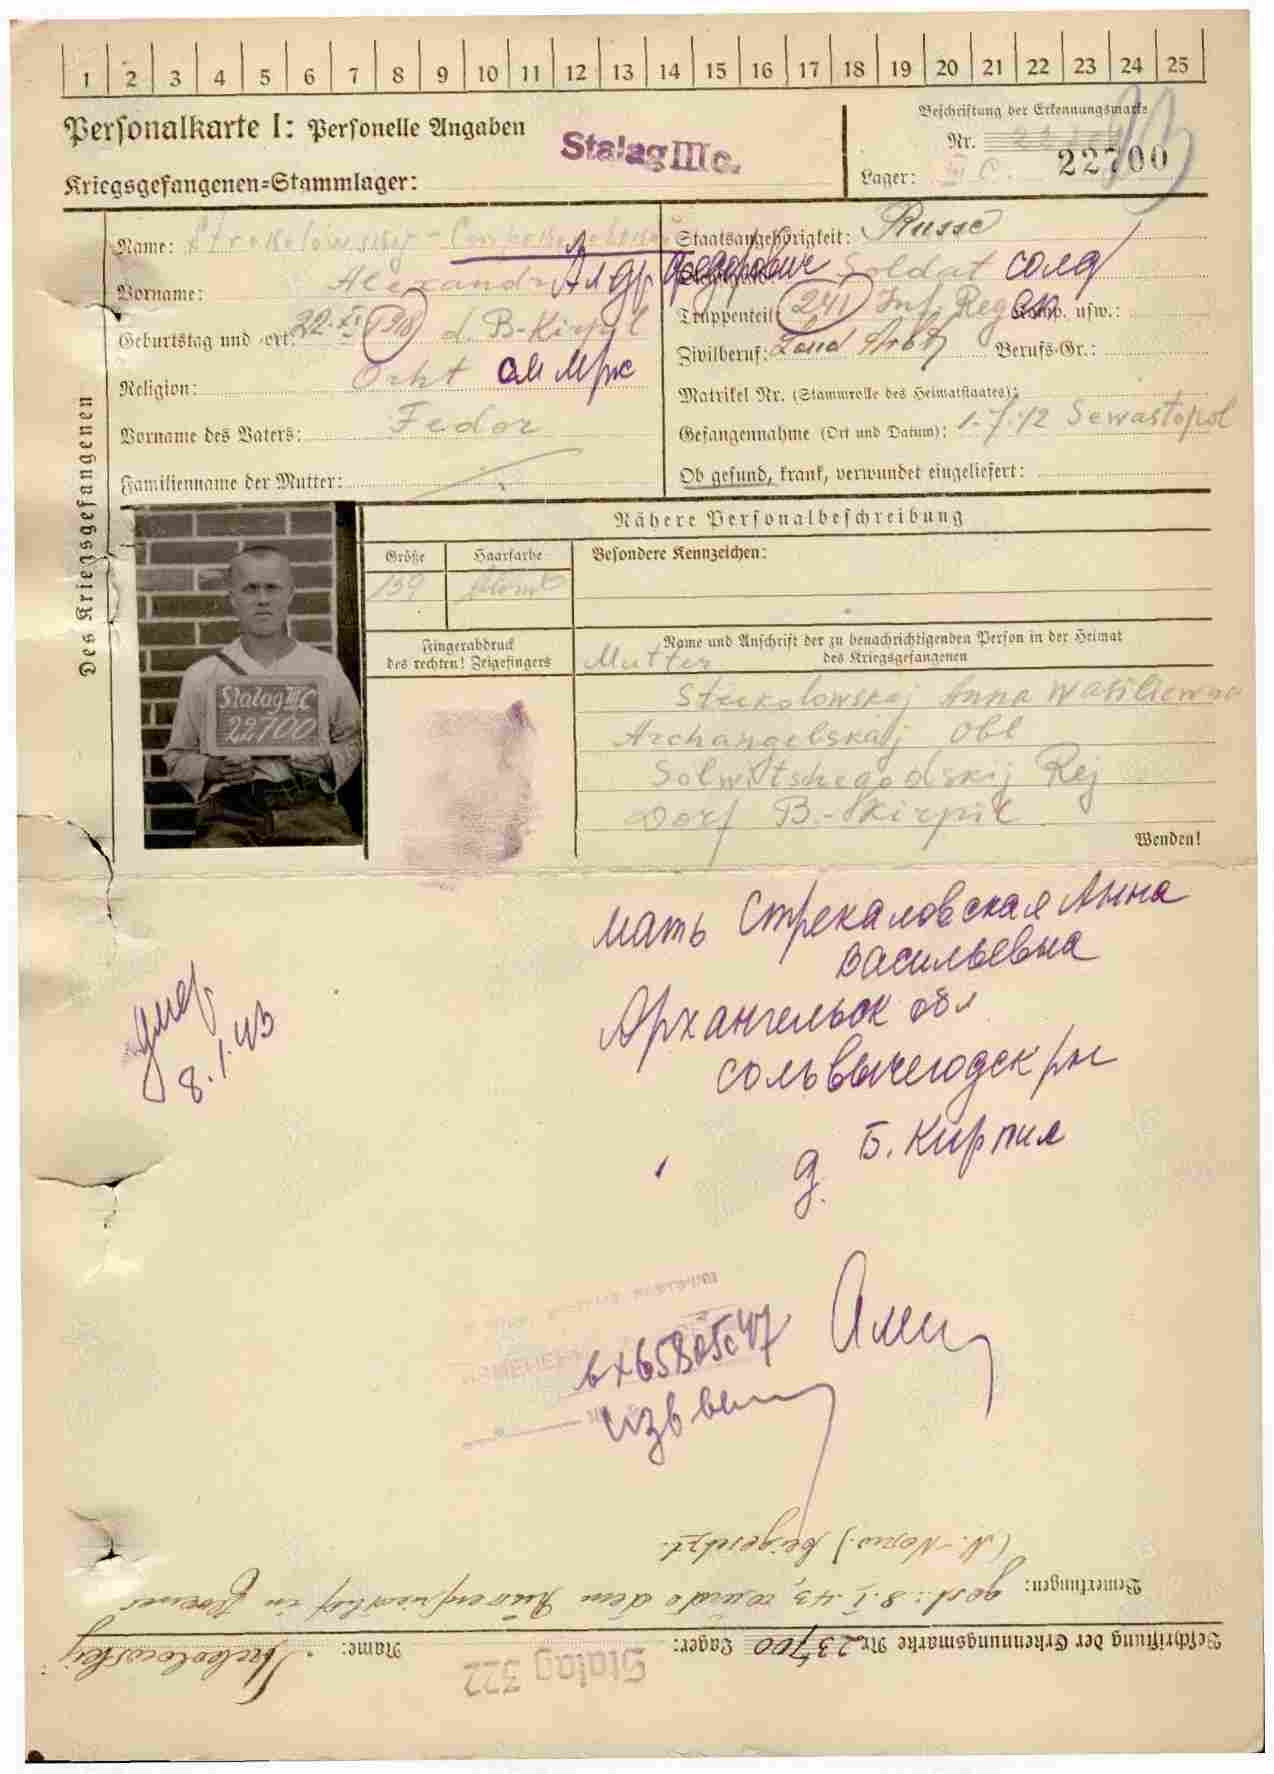 1 2 3 4 5 6 7 8 9 10 11 12 13 14 15 16 17 18 19 20 21 22 23 24 25
Personalkarte I: Personelle Angaben
Kriegsgefangenen=Stammlager: Stalag III c.
Beschriftung der Erkennungsmarke
Nr. 22700
Lager: III C.
Des Kriegsgefangenen
Name: Strekolowskij -
Vorname: Alexandr Алдр Федорович
Geburtstag und -ort: 22. XI 1918 d. B-Kirpil
Religion: Orht
Vorname des Vaters: Fedor
Familienname der Mutter:
Staatsangehörigkeit: Russe
Soldat солд
Truppenteil: 241 Inf. Reg Komp. usw.:
Zivilberuf: Land Arbt Berufs-Gr.:
Matrikel Nr. (Stammrolle des Heimatstaates):
Gefangennahme (Ort und Datum): 1.7.42 Sewastopol
Ob gesund, krank, verwundet eingeliefert:
Nähere Personalbeschreibung
Größe
Haarfarbe
Besondere Kennzeichen:
159 blond
Stalag III C
22700
Fingerabdruck
des rechten! Zeigefingers
Name und Anschrift der zu benachrichtigenden Person in der Heimat
des Kriegsgefangenen
Mutter
Strekolowskaj Anna Wasiliewna
Archangelskaj Obl
Solwitschegodskij Rej
Dorf B.-Kirpil
Wenden!
мать Стрекаловская Анна
Васильевна
Архангельск обл
сольвычегодск рн
д. Б. Кирпил
умер
8.1.43
Beschriftung der Erkennungsmarke Nr. 23700 Lager: Stalag 322 Name: Strekolowskij
Bemerkungen: gest.: 8.I.43, wurde dem Russenfriedhof in
(N.-Norw.) beigesetzt.